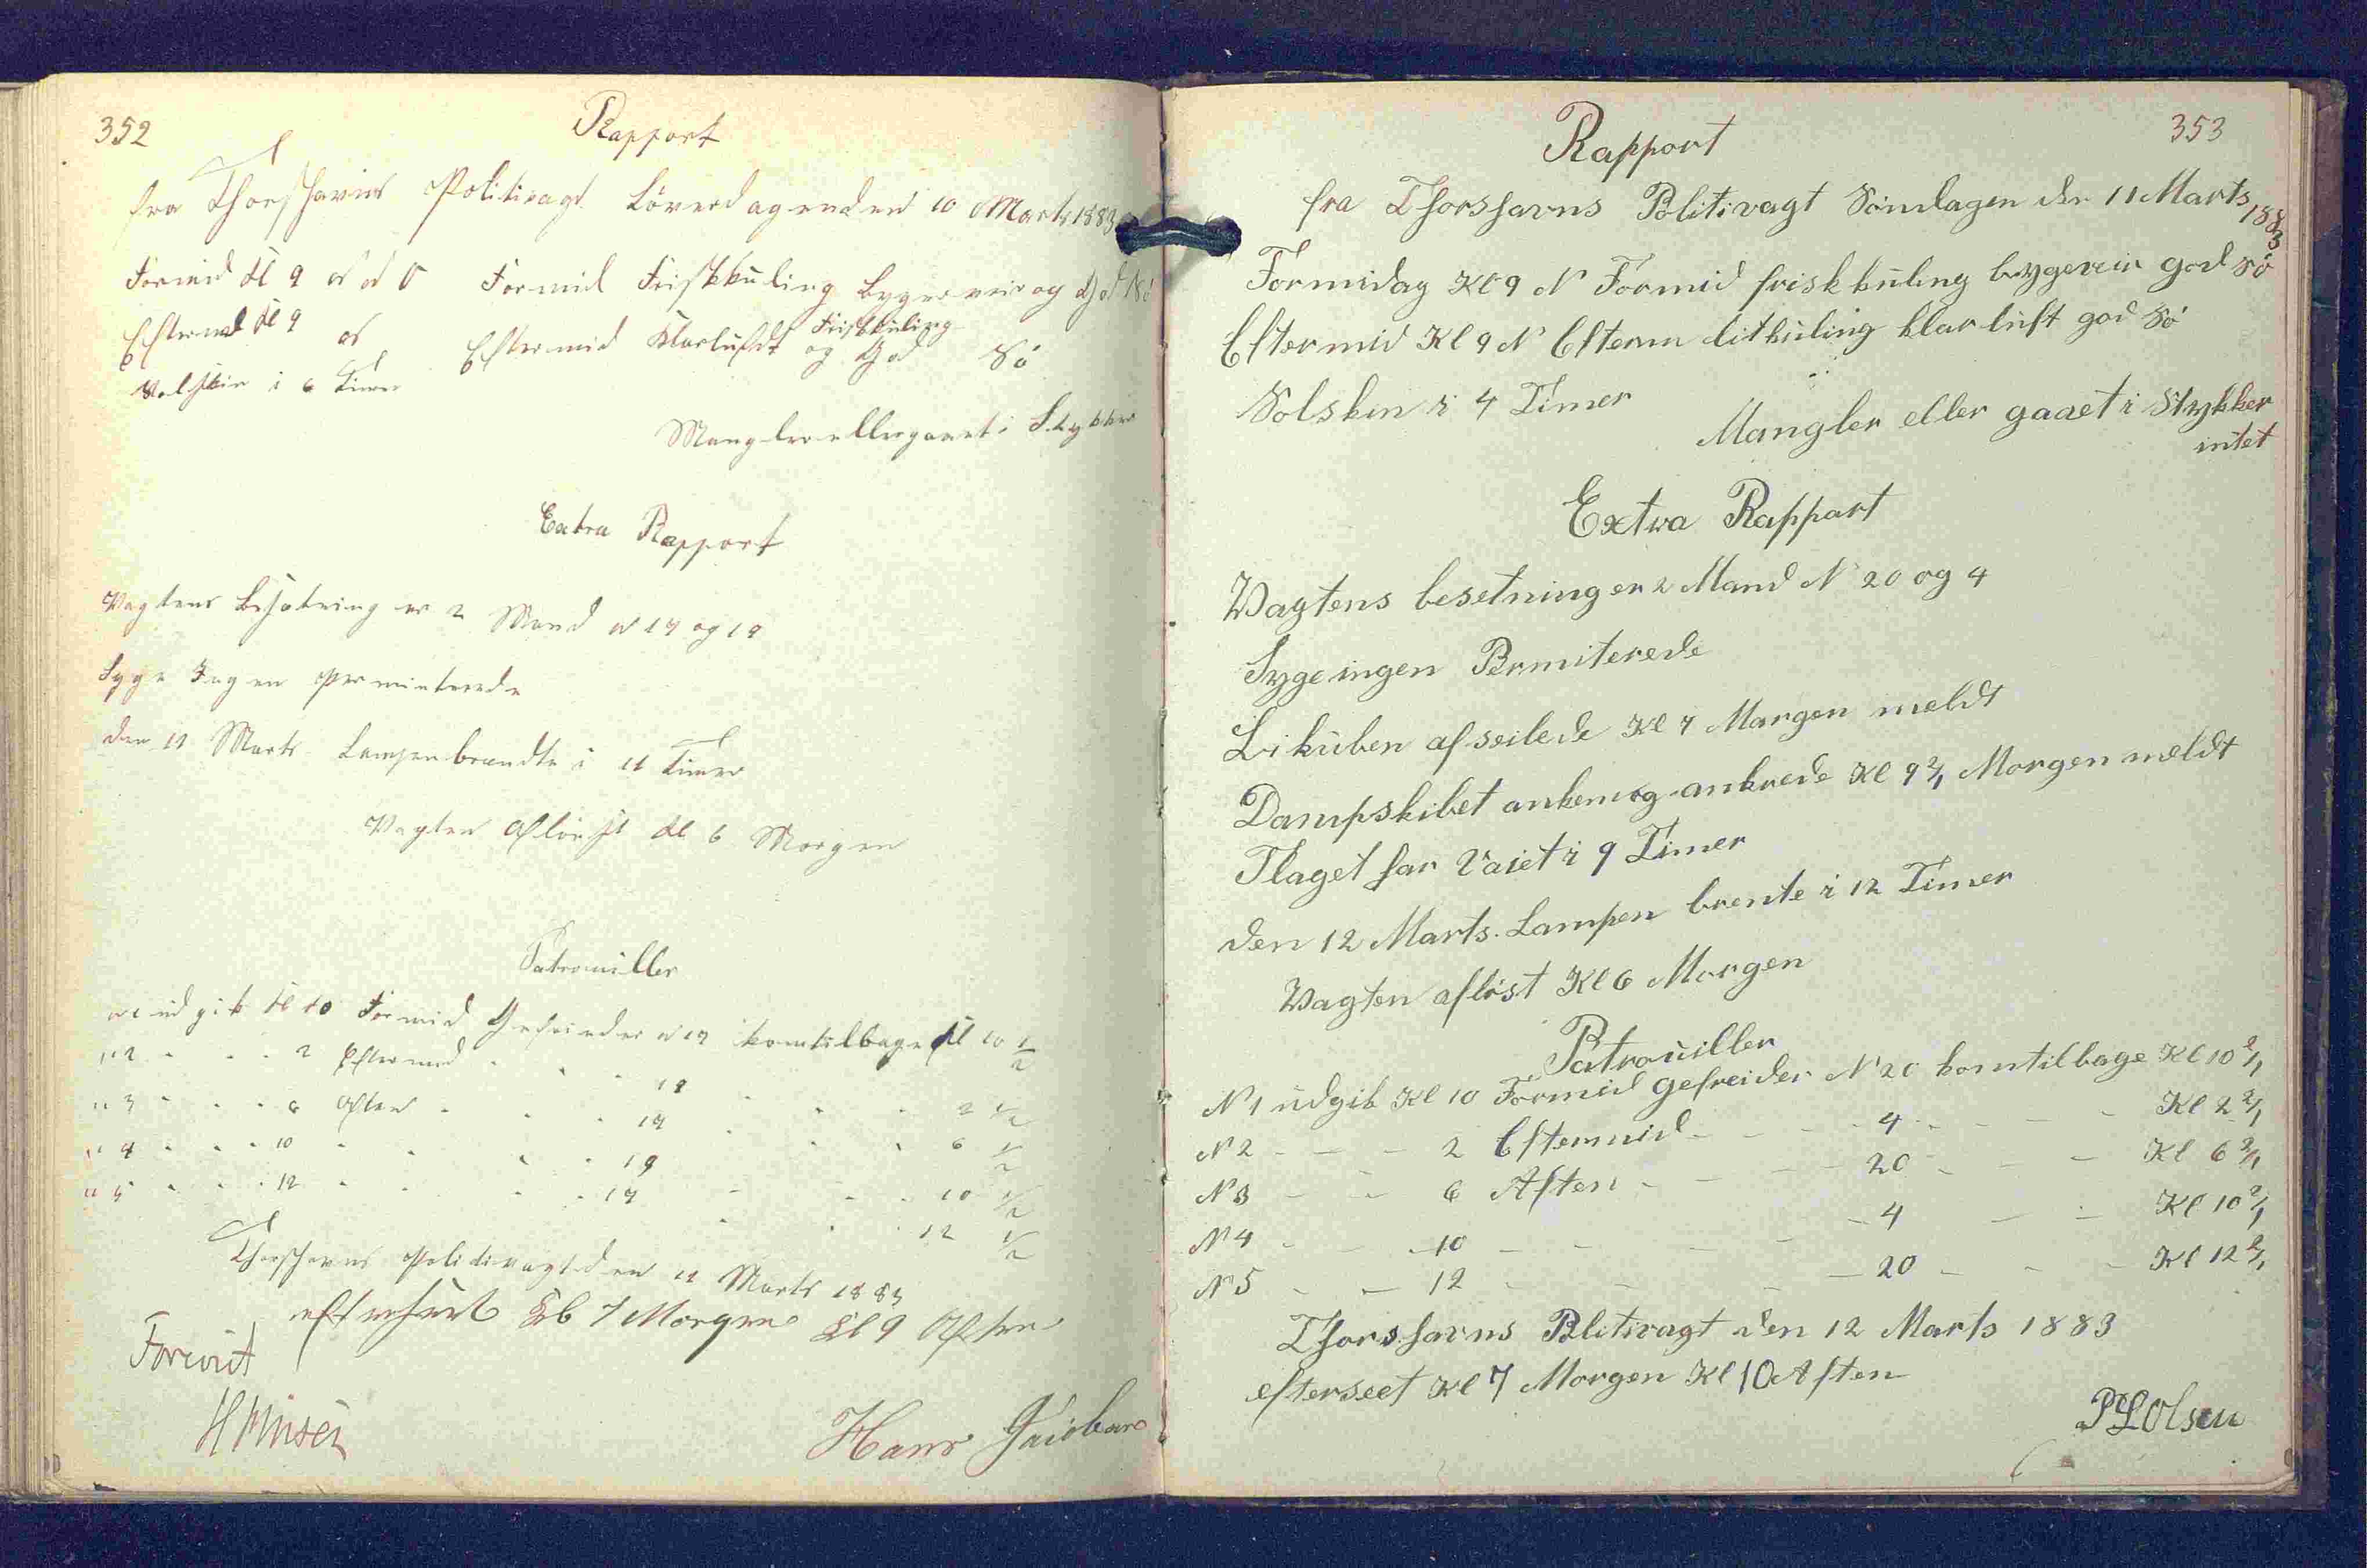 352
Rapport
fra Thorshavns Politivagt Löverdagenden 10 Marts 1883
Formid Kl 9 Formid Friskkuling bygeveir og God Sö
Eftermd Kl 9 Eftermid Klarluft Friskkuling og God Sö
Solskin i 6 Timer
Mangler eller gaaet i Stykker
Extra Rapport
Vagtens besætning er 2 Mand N 17 og 19
Syge Ingen Perminterede
den 11 Marts Lampen brændte i 11 Timer
Vagten Aflöist Kl 6 Morgen
Patrouiller
N 1 udgik Kl 10 Formid Gefreider N 17 komtilbage Kl 10 1/2
" 2 - - - 2 Eftermd - - - 19 - - - 2 1/2
" 3 - - - 6 Aften - - - 17 - - - 6 1/2
" 4 - - - 10 - - - 19 - - - 10 1/2
" 5 - - - 12 - - - 17 - - - 12 1/2
Thorshavns Politivagt den 11 Marts 1883
efterseet Kl 7 Morgen Kl 9 Aften
Forevist
Hans
353
Rapport
fra Thorshavns Politivagt Söndagen den 11 Marts 1883
Formidag Kl 9 N Formid frisk kuling bygeveir god Sö
Eftermid Kl 9 N Efterm litkuling klar luft god Sö
Solsken i 4 Timer
Mangler eller gaaet i Stykker
intet
Extra Rappart
Vagtens besetning er 2 Mand N 20 og 4
Syge ingen Permiterede
Likuben afseilede Kl 7 Morgen meldt
Dampskibet ankom og ankrede Kl 9 2/1 Morgen meldt
Flaget har Vaiet i 9 Timer
den 12 Marts. Lampen brente i 12 Timer
Vagten aflöst Kl 6 Morgen
Patrouiller
N 1 udgik Kl 10 Formid gefreider N 20 komtilbage Kl 10 2/1
N 2 - - - 2 Eftermid - - - 4 - - - Kl 2 2/1
N 3 - - 6 Aften - - - 20 - - Kl 6 2/1
N 4 - - 10 - - - - 4 - - Kl 10 2/1
N 5 - - 12 - - - - 20 - - - Kl 12 2/1
Thorshavns Blitivagt den 12 Marts 1883
efterseet Kl 7 Morgen Kl 10 Aften
P L Olsen